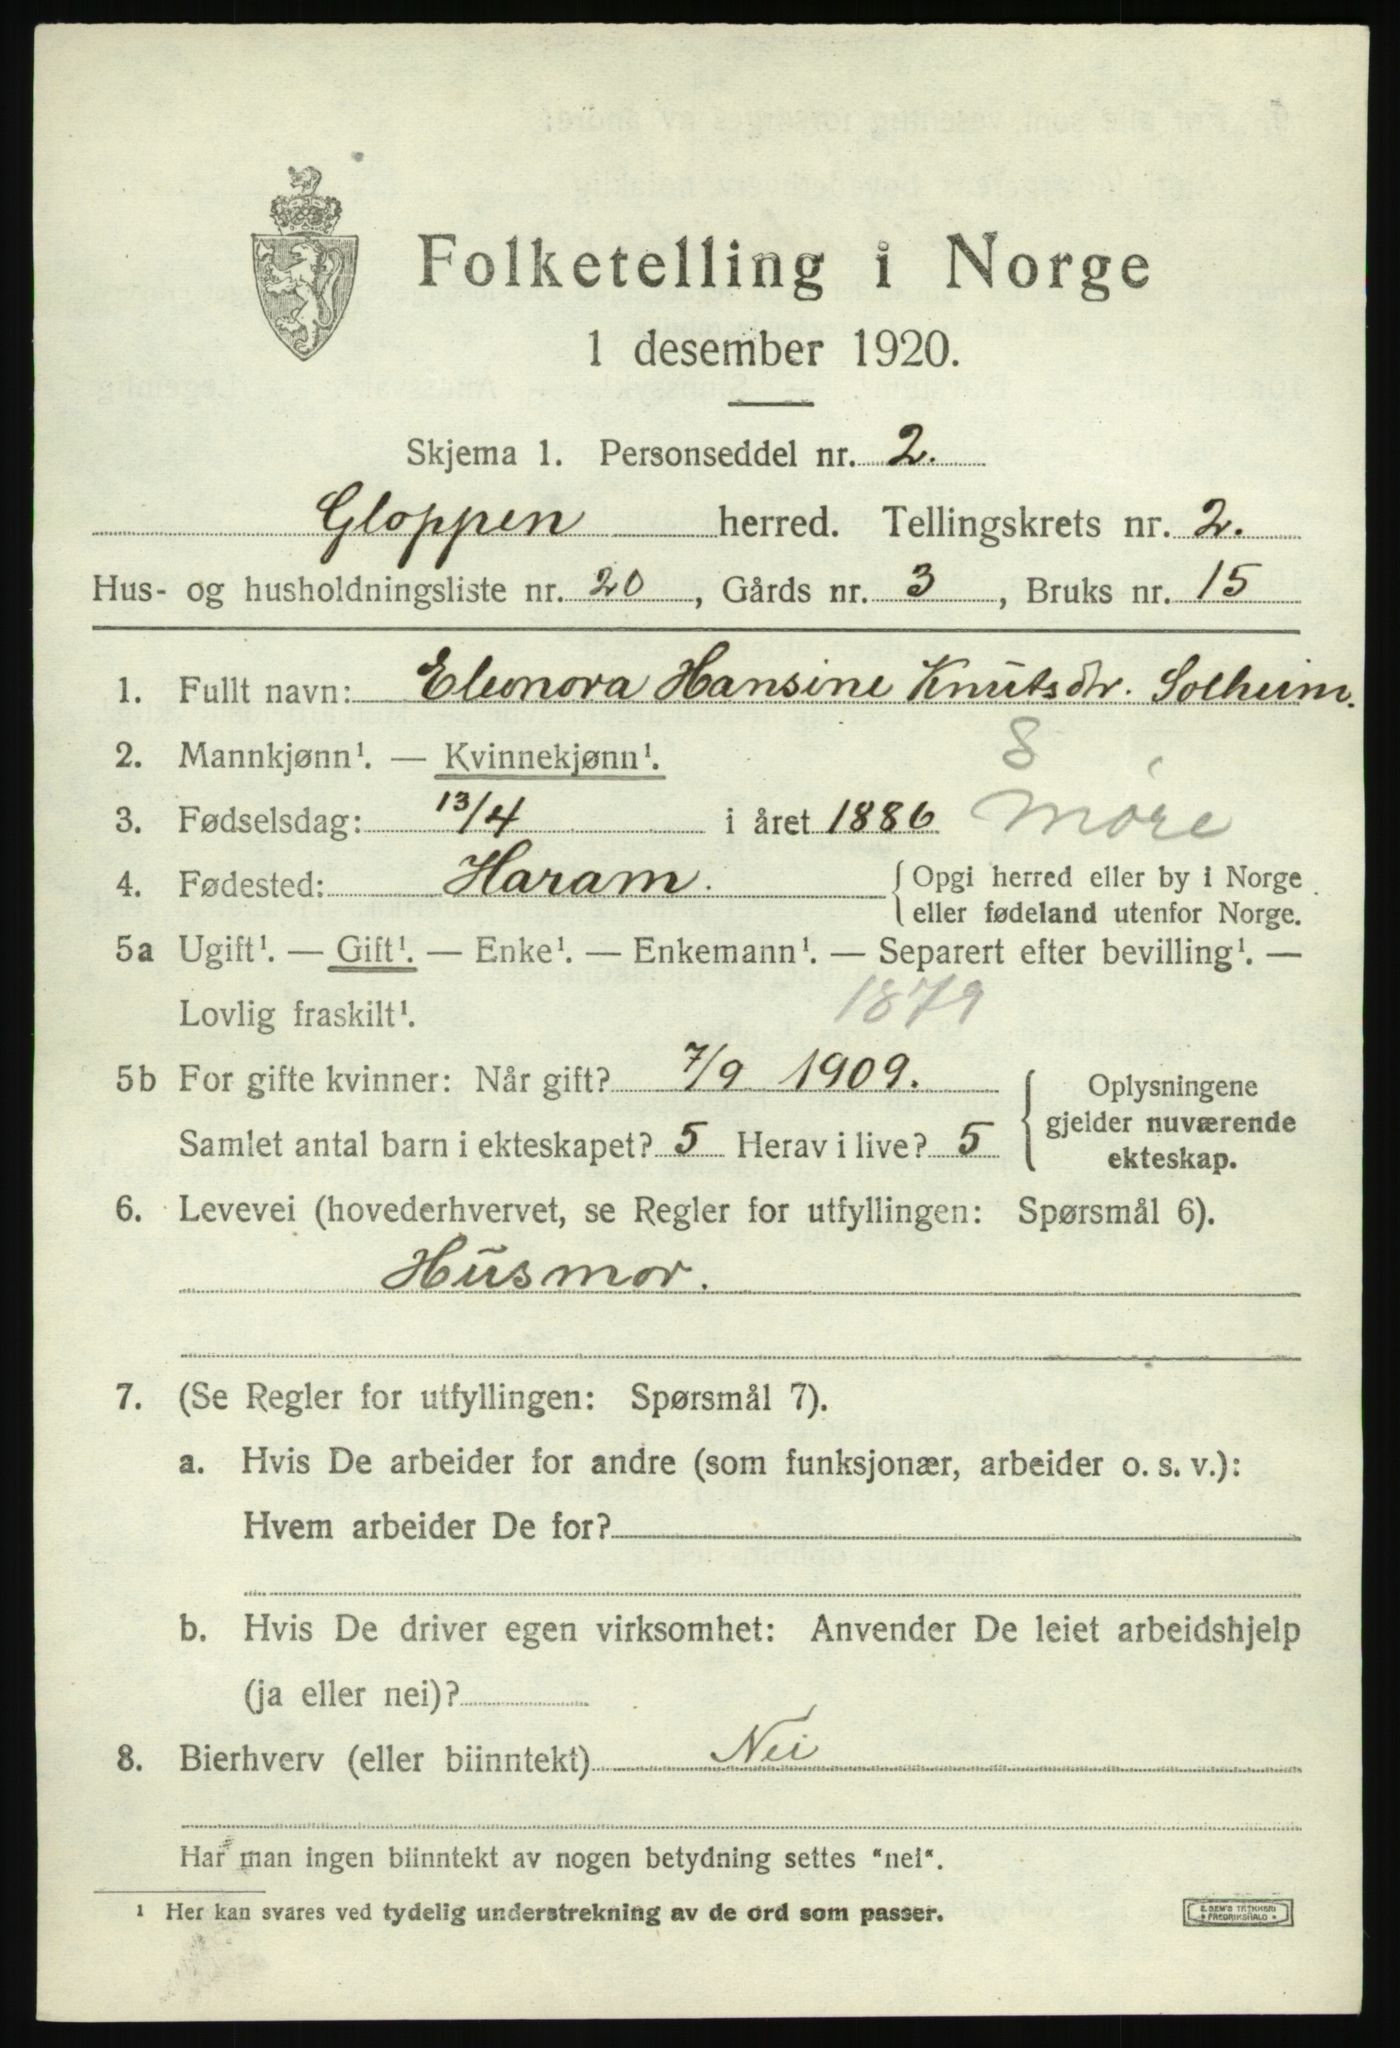 Folketelling i Norge
1 desember 1920.
Skjema 1. Personseddel nr. 2.
Gloppen herred. Tellingskrets nr. 2.
Hus- og husholdningsliste nr. 20, Gårds nr. 3, Bruks nr. 15
1. Fullt navn: Eleonora Hansine Knutsdtr. Solheim.
8
2. Mannkjønn¹. — Kvinnekjønn¹.
3. Fødselsdag: 13/4 i året 1886 Møre
4. Fødested: Haram. Opgi herred eller by i Norge
eller fødeland utenfor Norge.
5a Ugift¹. — Gift¹. — Enke¹. — Enkemann¹. — Separert efter bevilling¹. —
Lovlig fraskilt¹. 1879
5b For gifte kvinner: Når gift? 7/9 1909.
Samlet antal barn i ekteskapet? 5 Herav i live? 5
Oplysningene
gjelder nuværende
ekteskap.
6. Levevei (hovederhvervet, se Regler for utfyllingen: Spørsmål 6).
Husmor.
7. (Se Regler for utfyllingen: Spørsmål 7).
a. Hvis De arbeider for andre (som funksjonær, arbeider o. s. v.):
Hvem arbeider De for?
b. Hvis De driver egen virksomhet: Anvender De leiet arbeidshjelp
(ja eller nei)?
8. Bierhverv (eller biinntekt) Nei
Har man ingen biinntekt av nogen betydning settes "nei".
¹ Her kan svares ved tydelig understrekning av de ord som passer.
E. SEM'S TRYKKERI
FREDRIKSHALD